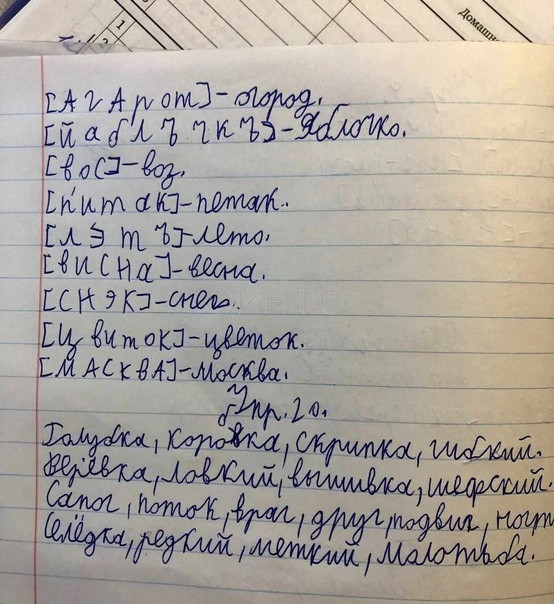 Домашн
[АгАрот]-огород.
[йаблъчкъ]-Яблочко.
[вос]-воз.
[п'итак]-петак.
[лэтъ]-лето.
[висна]-весна.
[снэк]-снег.
[цвиток]-цветок.
[МАСКВА]-москва.
Упр. 20.
Голубка, коровка, скрипка, гибкий.
Верёвка, ловкий, вышивка, шефский.
Сапог, поток, враг, друг, подвиг, ногт
Селёдка, редкий, меткий, малотьба.